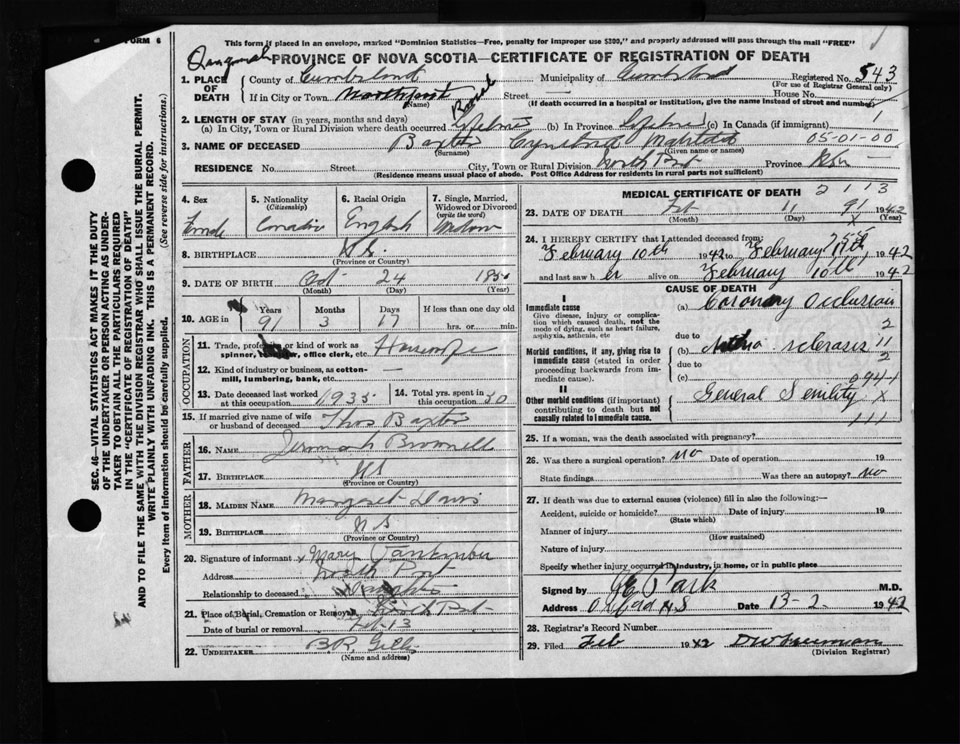 FORM 6
This form if placed in an envelope, marked "Dominion Statistics—Free, penalty for improper use $300," and properly addressed will pass through the mail "FREE"
PROVINCE OF NOVA SCOTIA—CERTIFICATE OF REGISTRATION OF DEATH
1. PLACE OF DEATH
County of Cumberland Municipality of Cumberland Registered No. 543
(For use of Registrar General only)
If in City or Town Northport Rural Street House No.
(Name) (If death occurred in a hospital or institution, give name instead of street and number)
2. LENGTH OF STAY (in years, months and days)
(a) In City, Town or Rural Division where death occurred lifetime (b) In Province lifetime (c) In Canada (if immigrant) 1
3. NAME OF DECEASED Baxter Matilda 05-01-00
(Surname) (Given name or names)
RESIDENCE No. Street City, Town or Rural Division North Port Province N.S.
(Residence means usual place of abode. Post Office Address for residents in rural parts not sufficient)
4. Sex
5. Nationality
(Citizenship)
6. Racial Origin
7. Single, Married, Widowed or Divorced
(write the word)
Female Canadian English Widow
8. BIRTHPLACE N.S.
(Province or Country)
9. DATE OF BIRTH Oct 24 1850
(Month) (Day) (Year)
10. AGE in Years Months Days If less than one day old
91 3 17 hrs. or min.
OCCUPATION
11. Trade, profession or kind of work as spinner, office clerk, etc. Housewife
12. Kind of industry or business, as cotton-mill, lumbering, bank, etc. —
13. Date deceased last worked at this occupation 1935
14. Total yrs. spent in this occupation 50
15. If married give name of wife or husband of deceased Thos Baxter
FATHER
16. NAME Jeremiah Brownell
17. BIRTHPLACE N.S.
(Province or Country)
MOTHER
18. MAIDEN NAME Margaret Davis
19. BIRTHPLACE N S
(Province or Country)
20. Signature of informant x Mary
Address North Port
Relationship to deceased
21. Place of Burial, Cremation or Removal North Port
Date of burial or removal Feb-13
22. UNDERTAKER B.R. Gills
(Name and address)
MEDICAL CERTIFICATE OF DEATH
2 1 1 3
23. DATE OF DEATH Feb 11 91 1942
(Month) (Day) (Year)
24. I HEREBY CERTIFY that I attended deceased from:
February 10th 1942 to February 1942
and last saw h er alive on February 10th, 1942
CAUSE OF DEATH
I
Immediate cause
Give disease, injury or complication which caused death, not the mode of dying, such as heart failure, asphyxia, asthenia, etc
(a) Coronary Occlusion
due to
Morbid conditions, if any, giving rise to immediate cause (stated in order proceeding backwards from immediate cause).
(b) sclerosis
due to
(c)
094-1
II
Other morbid conditions (if important) contributing to death but not causally related to immediate cause.
General Senility X
111
25. If a woman, was the death associated with pregnancy?
26. Was there a surgical operation? no Date of operation 19
State findings Was there an autopsy? no
27. If death was due to external causes (violence) fill in also the following:—
Accident, suicide or homicide? Date of injury 19
(State which)
Manner of injury
(How sustained)
Nature of injury
Specify whether injury occurred in industry, in home, or in public place
Signed by M.D.
Address Oxford N.S Date 13-2 1942
28. Registrar's Record Number
29. Filed Feb 1942 D W Freeman
(Division Registrar)
SEC. 46—VITAL STATISTICS ACT MAKES IT THE DUTY OF THE UNDERTAKER OR PERSON ACTING AS UNDERTAKER TO OBTAIN ALL THE PARTICULARS REQUIRED IN THE "CERTIFICATE OF REGISTRATION OF DEATH" AND TO FILE THE SAME WITH THE DIVISION REGISTRAR WHO SHALL ISSUE THE BURIAL PERMIT.
WRITE PLAINLY WITH UNFADING INK. THIS IS A PERMANENT RECORD.
Every item of information should be carefully supplied. (See reverse side for instructions.)